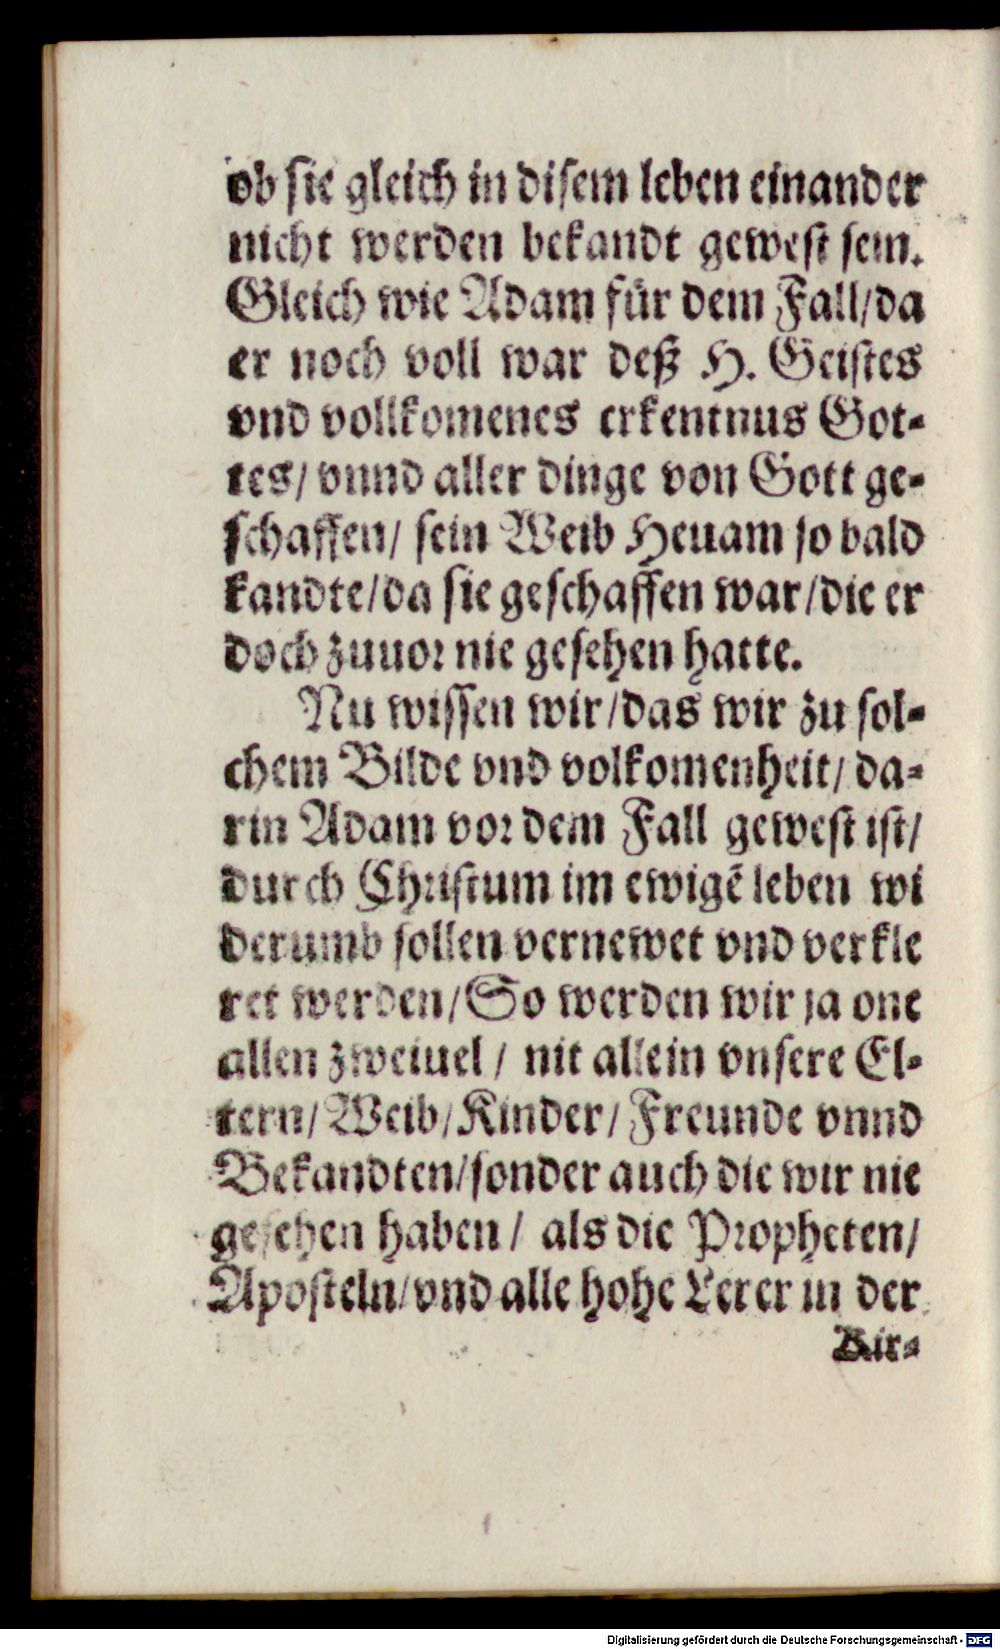 ob sie gleich in disem leben einander
nicht werden bekandt gewest sein.
Gleich wie Adam für dem Fall/da
er noch voll war deß H. Geistes
vnd vollkomenes erkentnus Got-
tes/ vnnd aller dinge von Gott ge-
schaffen/ sein Weib Heuam so bald
kandte/da sie geschaffen war/die er
doch zuuor nie gesehen hatte.
Nu wissen wir/das wir zu sol-
chem Bilde vnd volkomenheit/ da-
rin Adam vor dem Fall gewest ist/
durch Christum im ewigē leben wi
derumb sollen vernewet vnd verkle
ret werden/So werden wir ja one
allen zweiuel / nit allein vnsere El-
tern/ Weib/Kinder/ Freunde vnnd
Bekandten/sonder auch die wir nie
gesehen haben / als die Propheten/
Aposteln/vnd alle hohe Lerer in der
Kir-
Digitalisierung gefördert durch die Deutsche Forschungsgemeinschaft - DFG